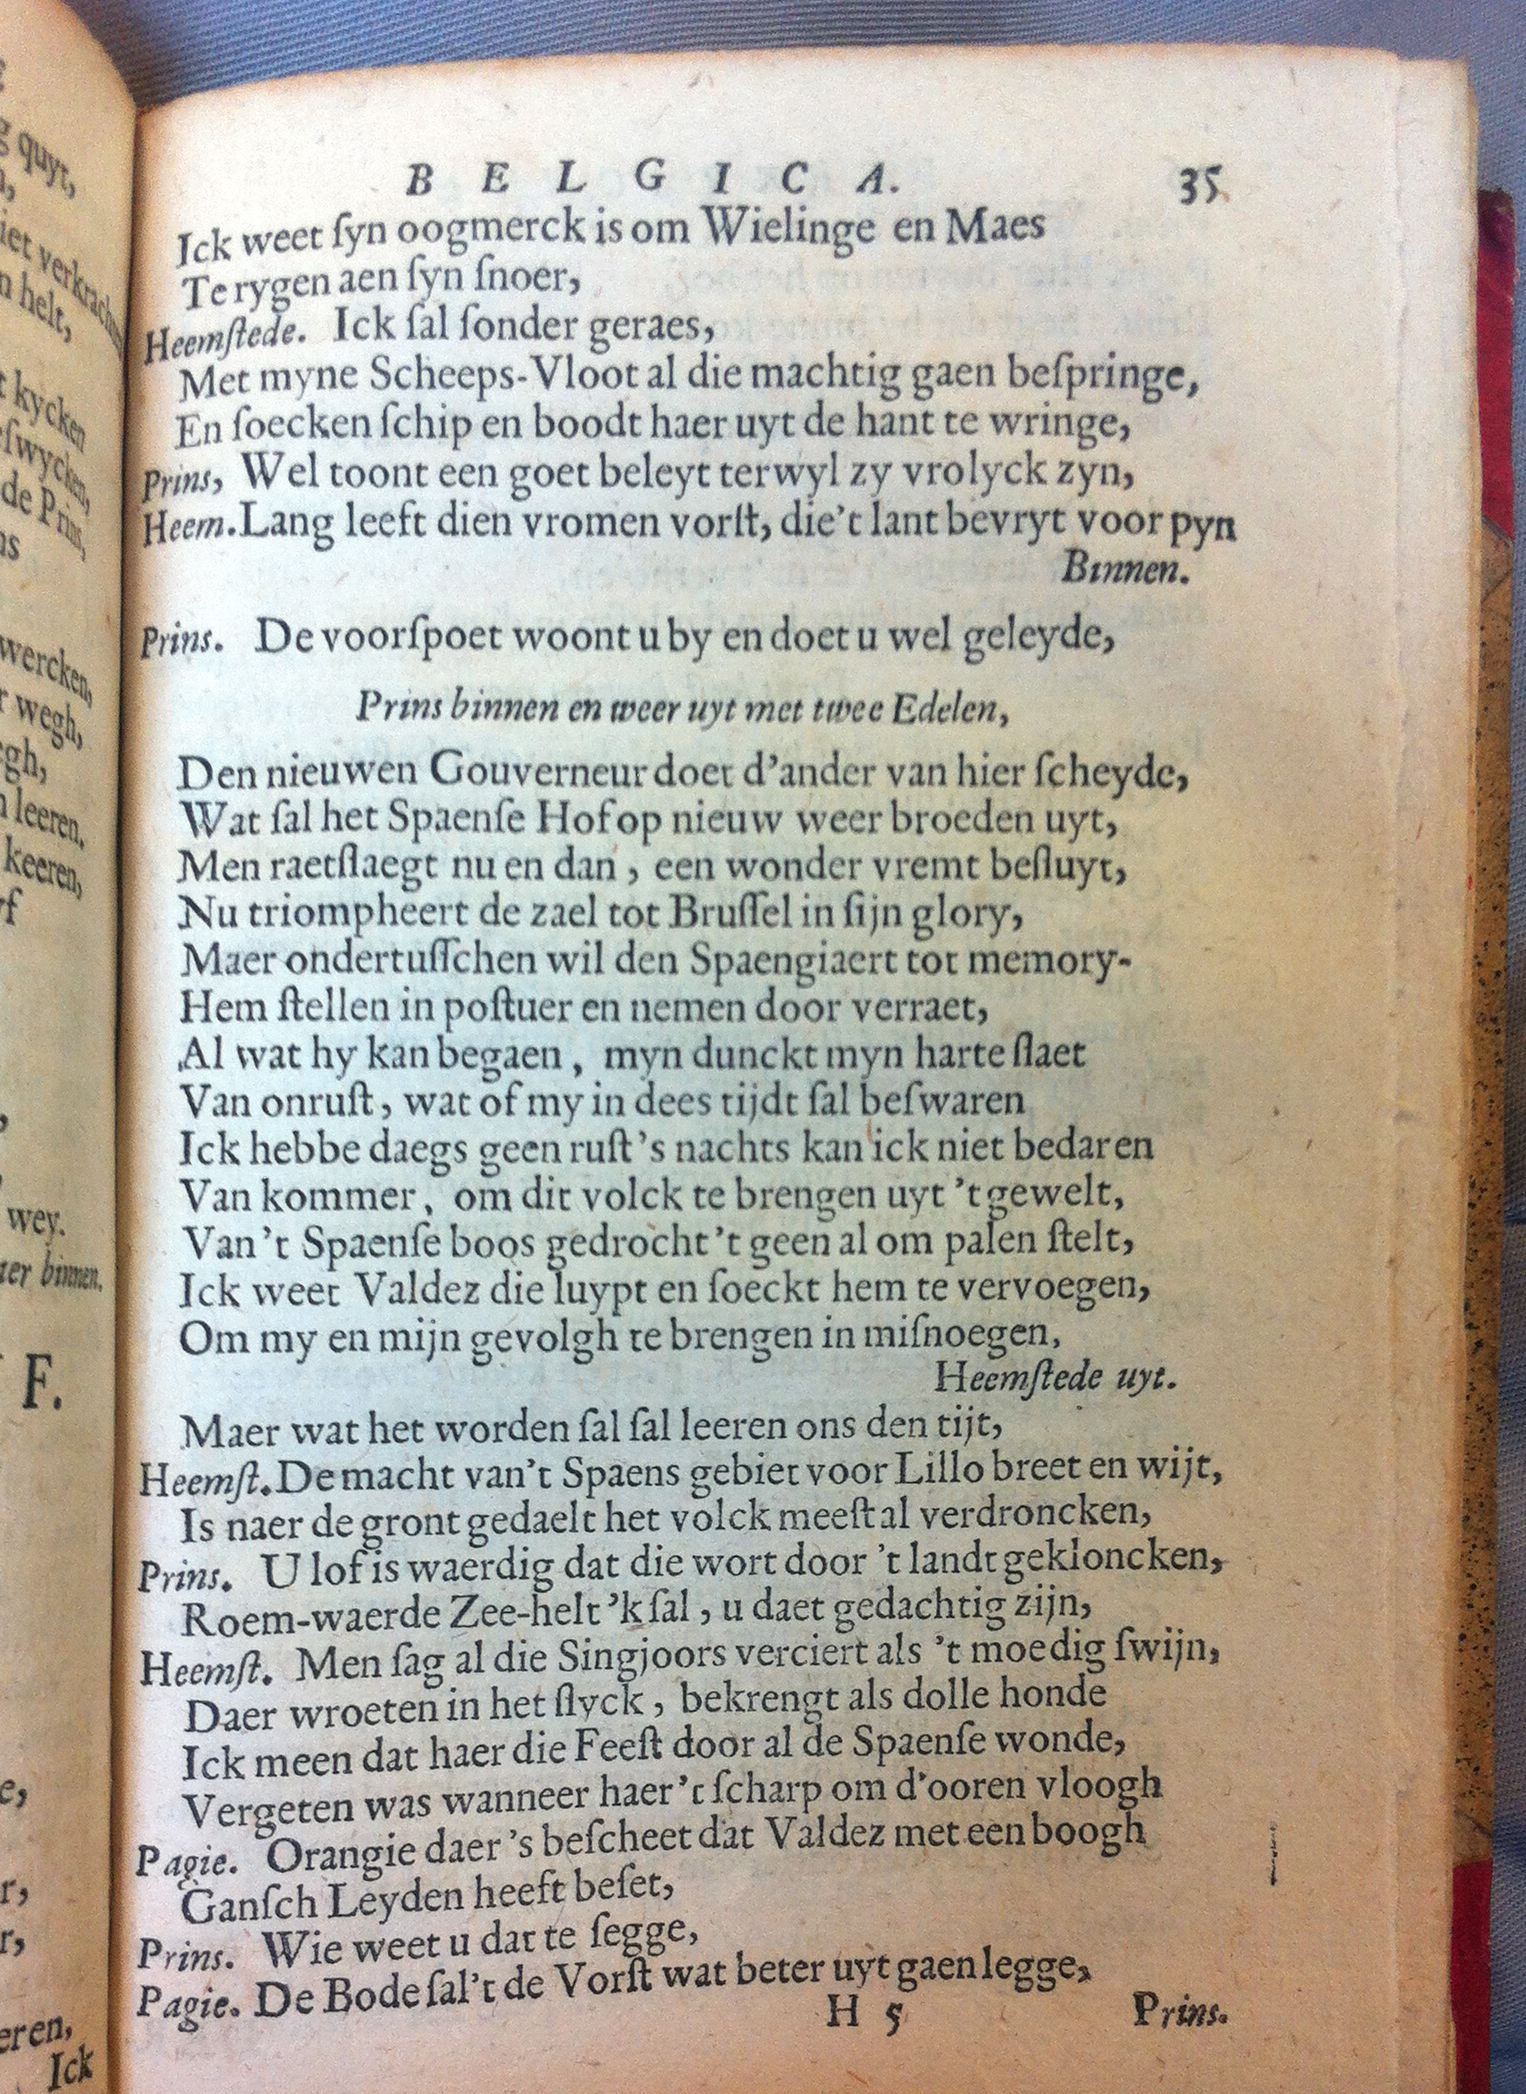 g quyt,
iet verkrach
n helt,
t kycken
ſwycken,
de Prins,
ns
wercken,
r wegh,
egh,
n leeren.
keeren,
wey.
er binnen.
F.
eren,
Ick
B E L G I C A. 35
Ick weet ſyn oogmerck is om Wielinge en Maes
Te rygen aen ſyn ſnoer,
Heemſtede. Ick ſal ſonder geraes,
Met myne Scheeps-Vloot al die machtig gaen beſpringe,
En ſoecken ſchip en boodt haer uyt de hant te wringe,
Prins, Wel toont een goet beleyt terwyl zy vrolyck zyn,
Heem. Lang leeft dien vromen vorſt, die't lant bevryt voor pyn
Binnen.
Prins. De voorſpoet woont u by en doet u wel geleyde,
Prins binnen en weer uyt met twee Edelen,
Den nieuwen Gouverneur doet d'ander van hier ſcheyde,
Wat ſal het Spaenſe Hof op nieuw weer broeden uyt,
Men raetſlaegt nu en dan, een wonder vremt beſluyt,
Nu triompheert de zael tot Bruſſel in ſijn glory,
Maer ondertuſſchen wil den Spaengiaert tot memory-
Hem ſtellen in poſtuer en nemen door verraet,
Al wat hy kan begaen, myn dunckt myn harte ſlaet
Van onruſt, wat of my in dees tijdt ſal beſwaren
Ick hebbe daegs geen ruſt 's nachts kan ick niet bedaren
Van kommer, om dit volck te brengen uyt 't gewelt,
Van 't Spaenſe boos gedrocht 't geen al om palen ſtelt,
Ick weet Valdez die luypt en ſoeckt hem te vervoegen,
Om my en mijn gevolgh te brengen in miſnoegen,
Heemſtede uyt.
Maer wat het worden ſal ſal leeren ons den tijt,
Heemſt. De macht van't Spaens gebiet voor Lillo breet en wijt,
Is naer de gront gedaelt het volck meeſt al verdroncken,
Prins. U lof is waerdig dat die wort door 't landt gekloncken,
Roem-waerde Zee-helt 'k ſal, u daet gedachtig zijn,
Heemſt. Men ſag al die Singjoors verciert als 't moedig ſwijn,
Daer wroeten in het ſlyck, bekrengt als dolle honde
Ick meen dat haer die Feeſt door al de Spaenſe wonde,
Vergeten was wanneer haer 't ſcharp om d'ooren vloogh
Pagie. Orangie daer 's beſcheet dat Valdez met een boogh
Ganſch Leyden heeft beſet,
Prins. Wie weet u dat te ſegge,
Pagie. De Bode ſal't de Vorſt wat beter uyt gaen legge,
H 5 Prins.